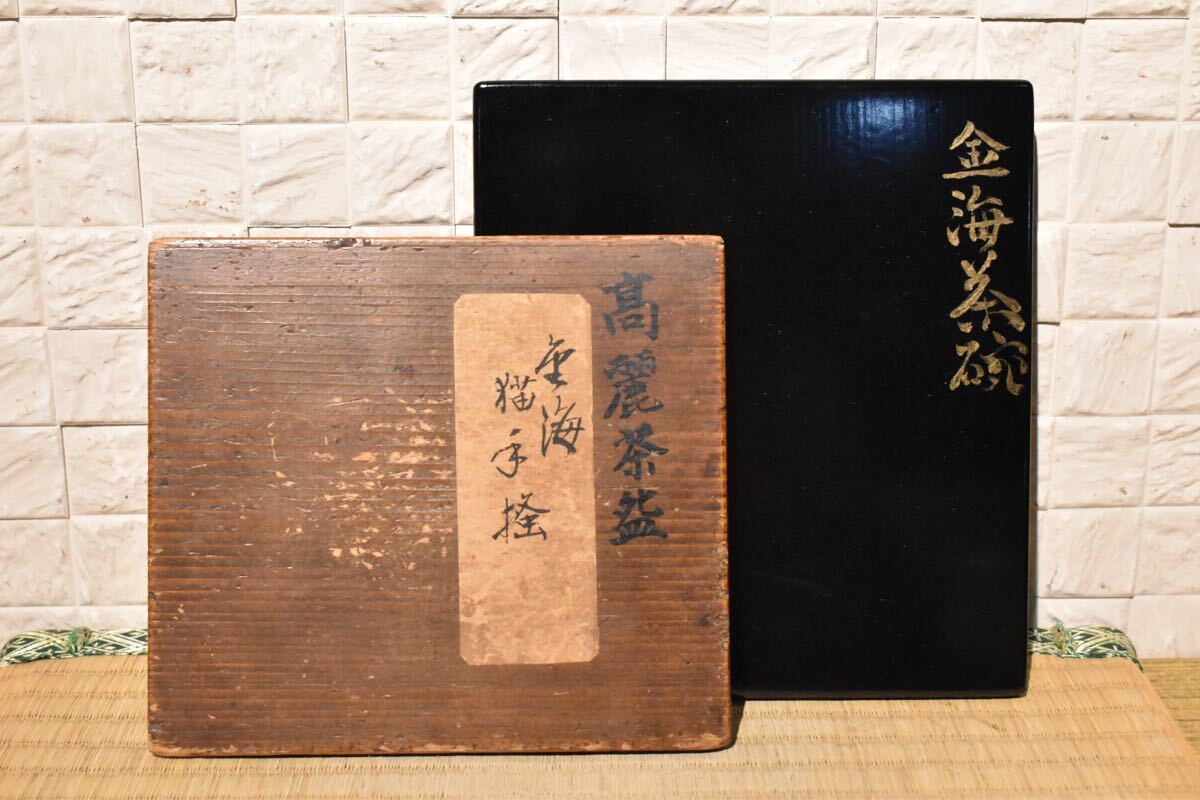 金海茶碗
高麗茶盌
金海
猫手掻